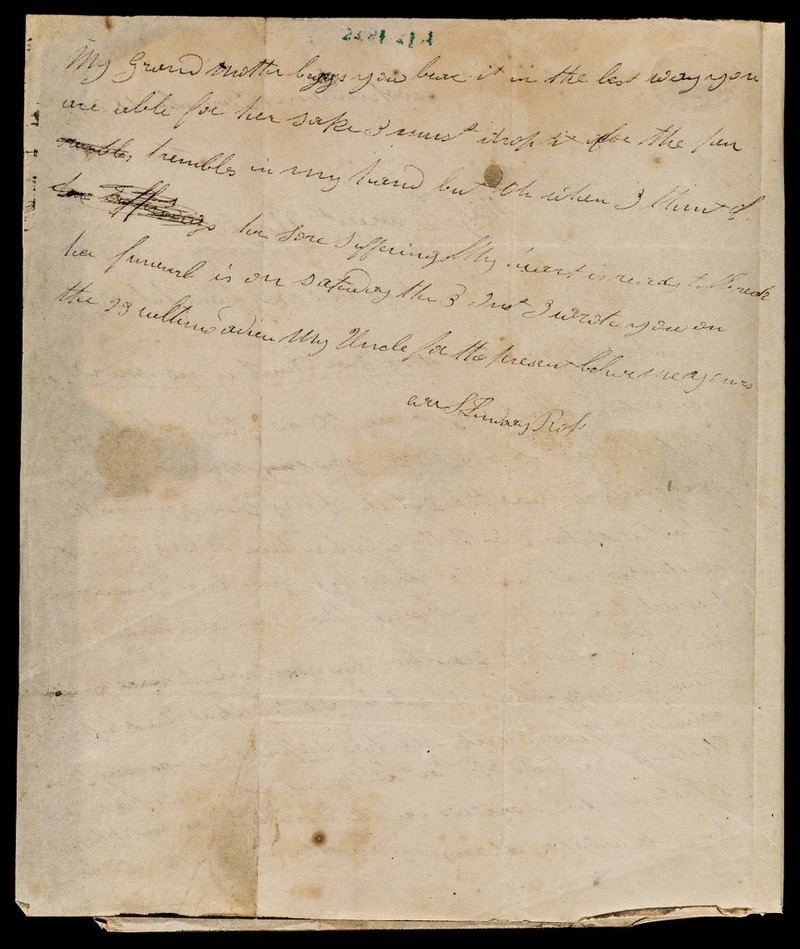 My Grand mother beggs you bear it in the best way you
are able for her sake I must drop it for the pen
trembles in my hand but oh when I think of
her sore suffering My heart is ready to Break
her funeral is on saturday the 3 Inst I wrote you on
the 29 ultimo adieu My Uncle for the present believe me yours
Lindsay Ross